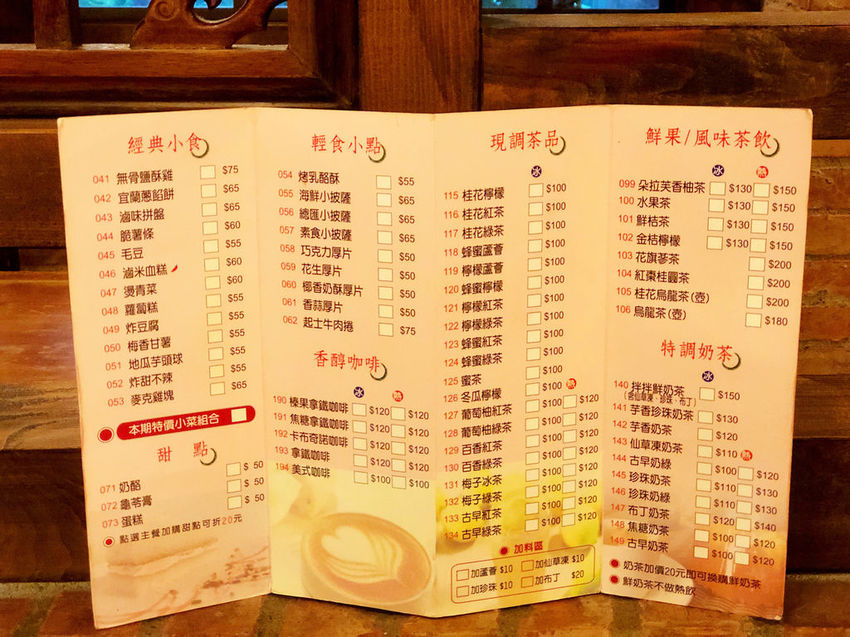 經典小食
041 無骨鹽酥雞 $75
042 宜蘭蔥餡餅 $65
043 滷味拼盤 $65
044 脆薯條 $60
045 毛豆 $55
046 滷米血糕 $60
047 燙青菜 $60
048 蘿蔔糕 $55
049 炸豆腐 $55
050 梅香甘薯 $55
051 地瓜芋頭球 $55
052 炸甜不辣 $55
053 麥克雞塊 $65
本期特價小菜組合
甜 點
071 奶酪 $ 50
072 龜苓膏 $ 50
073 蛋糕 $ 50
點選主餐加購甜點可折20元
輕食小點
054 烤乳酪酥 $55
055 海鮮小披薩 $65
056 總匯小披薩 $65
057 素食小披薩 $65
058 巧克力厚片 $50
059 花生厚片 $50
060 椰香奶酥厚片 $50
061 香蒜厚片 $50
062 起士牛肉捲 $75
香醇咖啡
冰 熱
190 榛果拿鐵咖啡 $120 $120
191 焦糖拿鐵咖啡 $120 $120
192 卡布奇諾咖啡 $120 $120
193 拿鐵咖啡 $120 $120
194 美式咖啡 $100 $100
現調茶品
冰
115 桂花檸檬 $100
116 桂花紅茶 $100
117 桂花綠茶 $100
118 蜂蜜蘆薈 $100
119 檸檬蘆薈 $100
120 蜂蜜檸檬 $100
121 檸檬紅茶 $100
122 檸檬綠茶 $100
123 蜂蜜紅茶 $100
124 蜂蜜綠茶 $100
125 蜜茶 $100 熱
126 冬瓜檸檬 $100 $120
127 葡萄柚紅茶 $100 $120
128 葡萄柚綠茶 $100 $120
129 百香紅茶 $100 $120
130 百香綠茶 $100 $120
131 梅子冰茶 $100 $120
132 梅子綠茶 $100 $120
133 古早紅茶 $100 $120
134 古早綠茶 $100 $120
加料區
加蘆薈 $10 加仙草凍 $10
加珍珠 $10 加布丁 $20
鮮果/風味茶飲
冰 熱
099 朵拉芙香柚茶 $130 $150
100 水果茶 $130 $150
101 鮮桔茶 $130 $150
102 金桔檸檬 $130 $150
103 花旗蔘茶 $200
104 紅棗桂圓茶 $200
105 桂花烏龍茶(壺) $200
106 烏龍茶(壺) $180
特調奶茶
冰
140 拌拌鮮奶茶 $150
(含仙草凍、珍珠、布丁)
141 芋香珍珠奶茶 $130
142 芋香奶茶 $120
143 仙草凍奶茶 $110 熱
144 古早奶綠 $100 $120
145 珍珠奶茶 $110 $130
146 珍珠奶綠 $110 $130
147 布丁奶茶 $120 $140
148 焦糖奶茶 $100 $120
149 古早奶茶 $100 $120
奶茶加價20元即可換購鮮奶茶
鮮奶茶不做熱飲